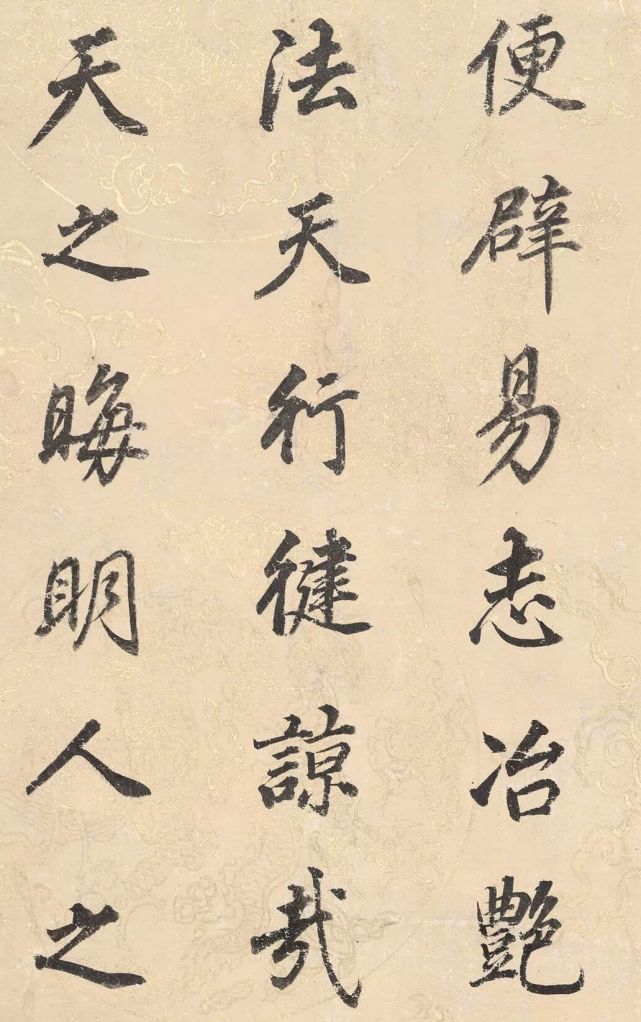 便辟易志冶艷
法天行健諒哉
天之晦明人之